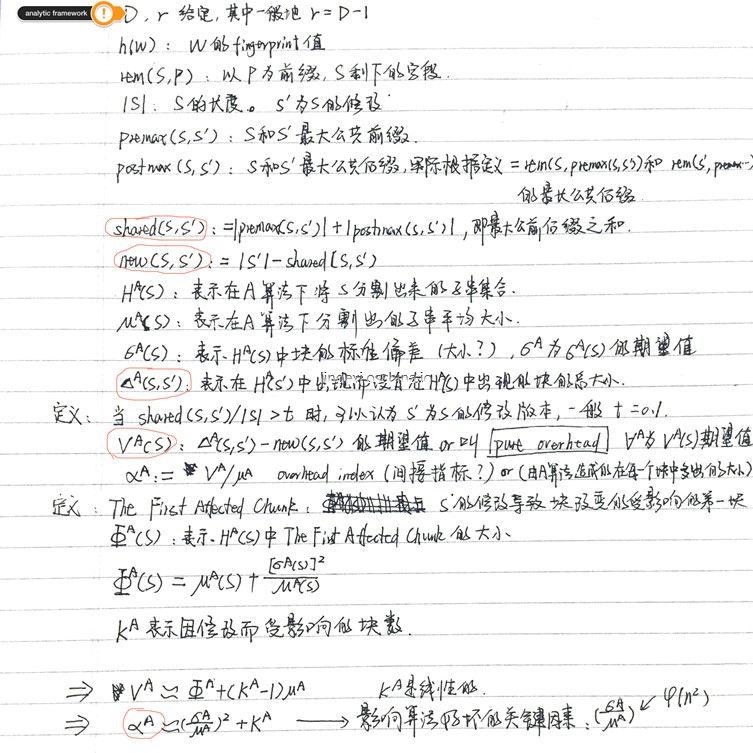 analytic framework
D, r 给定, 其中一般地 r = D-1
h(W): W的fingerprint值
rem(S,P): 以P为前缀, S剩下的字段.
|S|: S的长度。 S'为S的修改
premax(S,S'): S和S'最大公共前缀.
postmax(S,S'): S和S'最大公共后缀, 实际根据定义 = rem(S, premax(S,S'))和 rem(S', premax…)
的最长公共后缀
shared(S,S'): =|premax(S,S')|+|postmax(S,S')|, 即最大公前后缀之和.
new(S,S'): = |S'|-shared(S,S')
H^A(S): 表示在A算法下将S分割出来的子串集合.
μ^A(S): 表示在A算法下分割出的子串平均大小.
σ^A(S): 表示H^A(S)中块的标准偏差(大小?), σ^A为σ^A(S)的期望值
Δ^A(S,S'): 表示在H^A(S')中出现而没有在H^A(S)中出现的块的总大小.
定义: 当 shared(S,S')/|S| > t 时, 可以认为S'为S的修改版本, 一般 t=0.1.
V^A(S): Δ^A(S,S')-new(S,S') 的期望值 or 叫 pure overhead V^A为V^A(S)期望值
α^A: = V^A/μ^A overhead index (间接指标?) or (由A算法造成的在每个块中多出的大小)
定义: The First Affected Chunk: S'的修改导致块改变的受影响的第一块
Φ^A(S): 表示H^A(S)中The First Affected Chunk的大小
Φ^A(S) = μ^A(S) + [σ^A(S)]²/μ^A(S)
K^A 表示因修改而受影响的块数.
⇒ V^A ≈ Φ^A+(K^A-1)μ^A K^A是线性的.
⇒ α^A ≈ (σ^A/μ^A)² + K^A → 影响算法好坏的关键因素: (σ^A/μ^A) ↙ φ(n²)